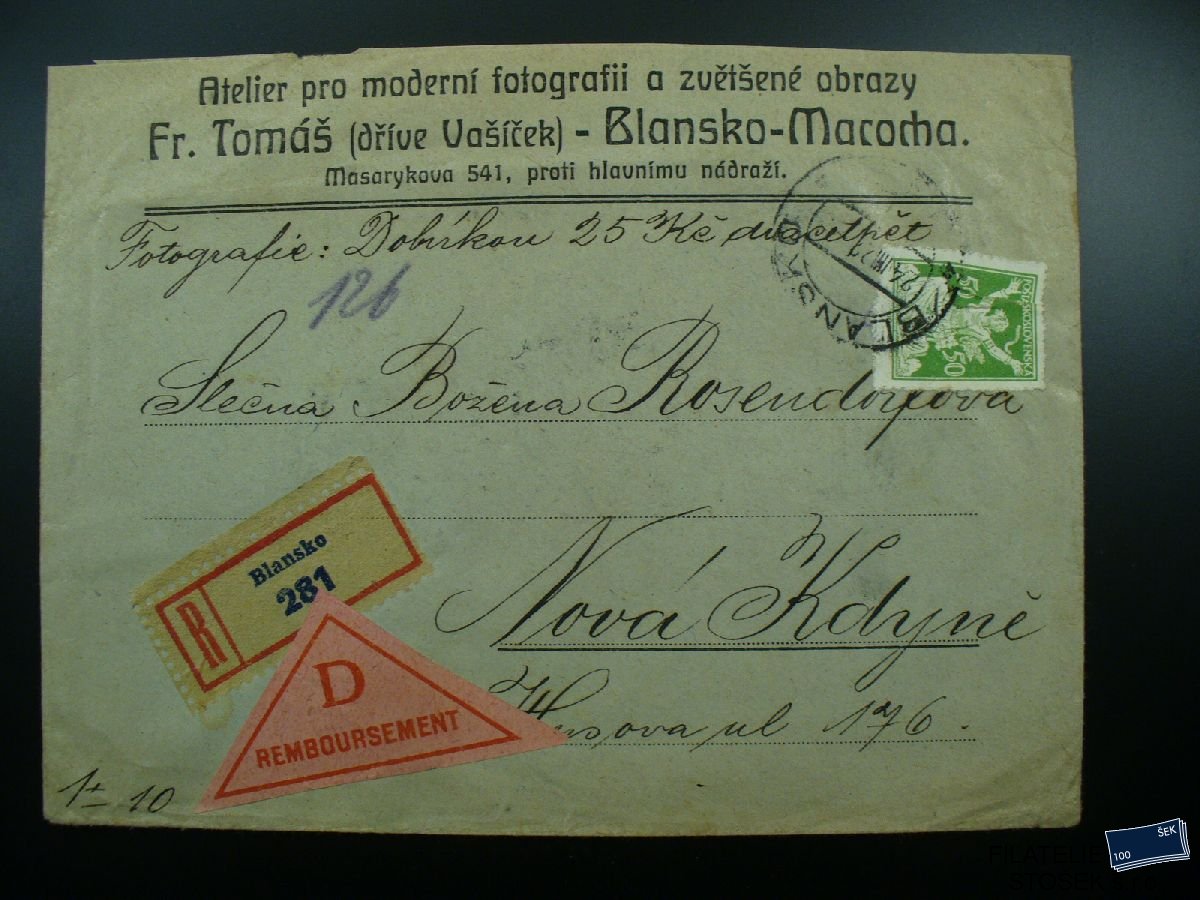 Atelier pro moderní fotografii a zvětšené obrazy
Fr. Tomáš (dříve Vašíček) - Blansko-Macocha.
Masarykova 541, proti hlavnímu nádraží.
Fotografie: Dobírkou 25 Kč dvacetpět
126
BLANSKO
24.III.21
POŠTA ČESKOSLOVENSKÁ
50 50
Slečna Božena Rosendorfova
Blansko
R 281
Nová Kdyně
D
REMBOURSEMENT
Husova ul 176.
1+ 10
FILATELIE
STOŠEK
ŠEK
100